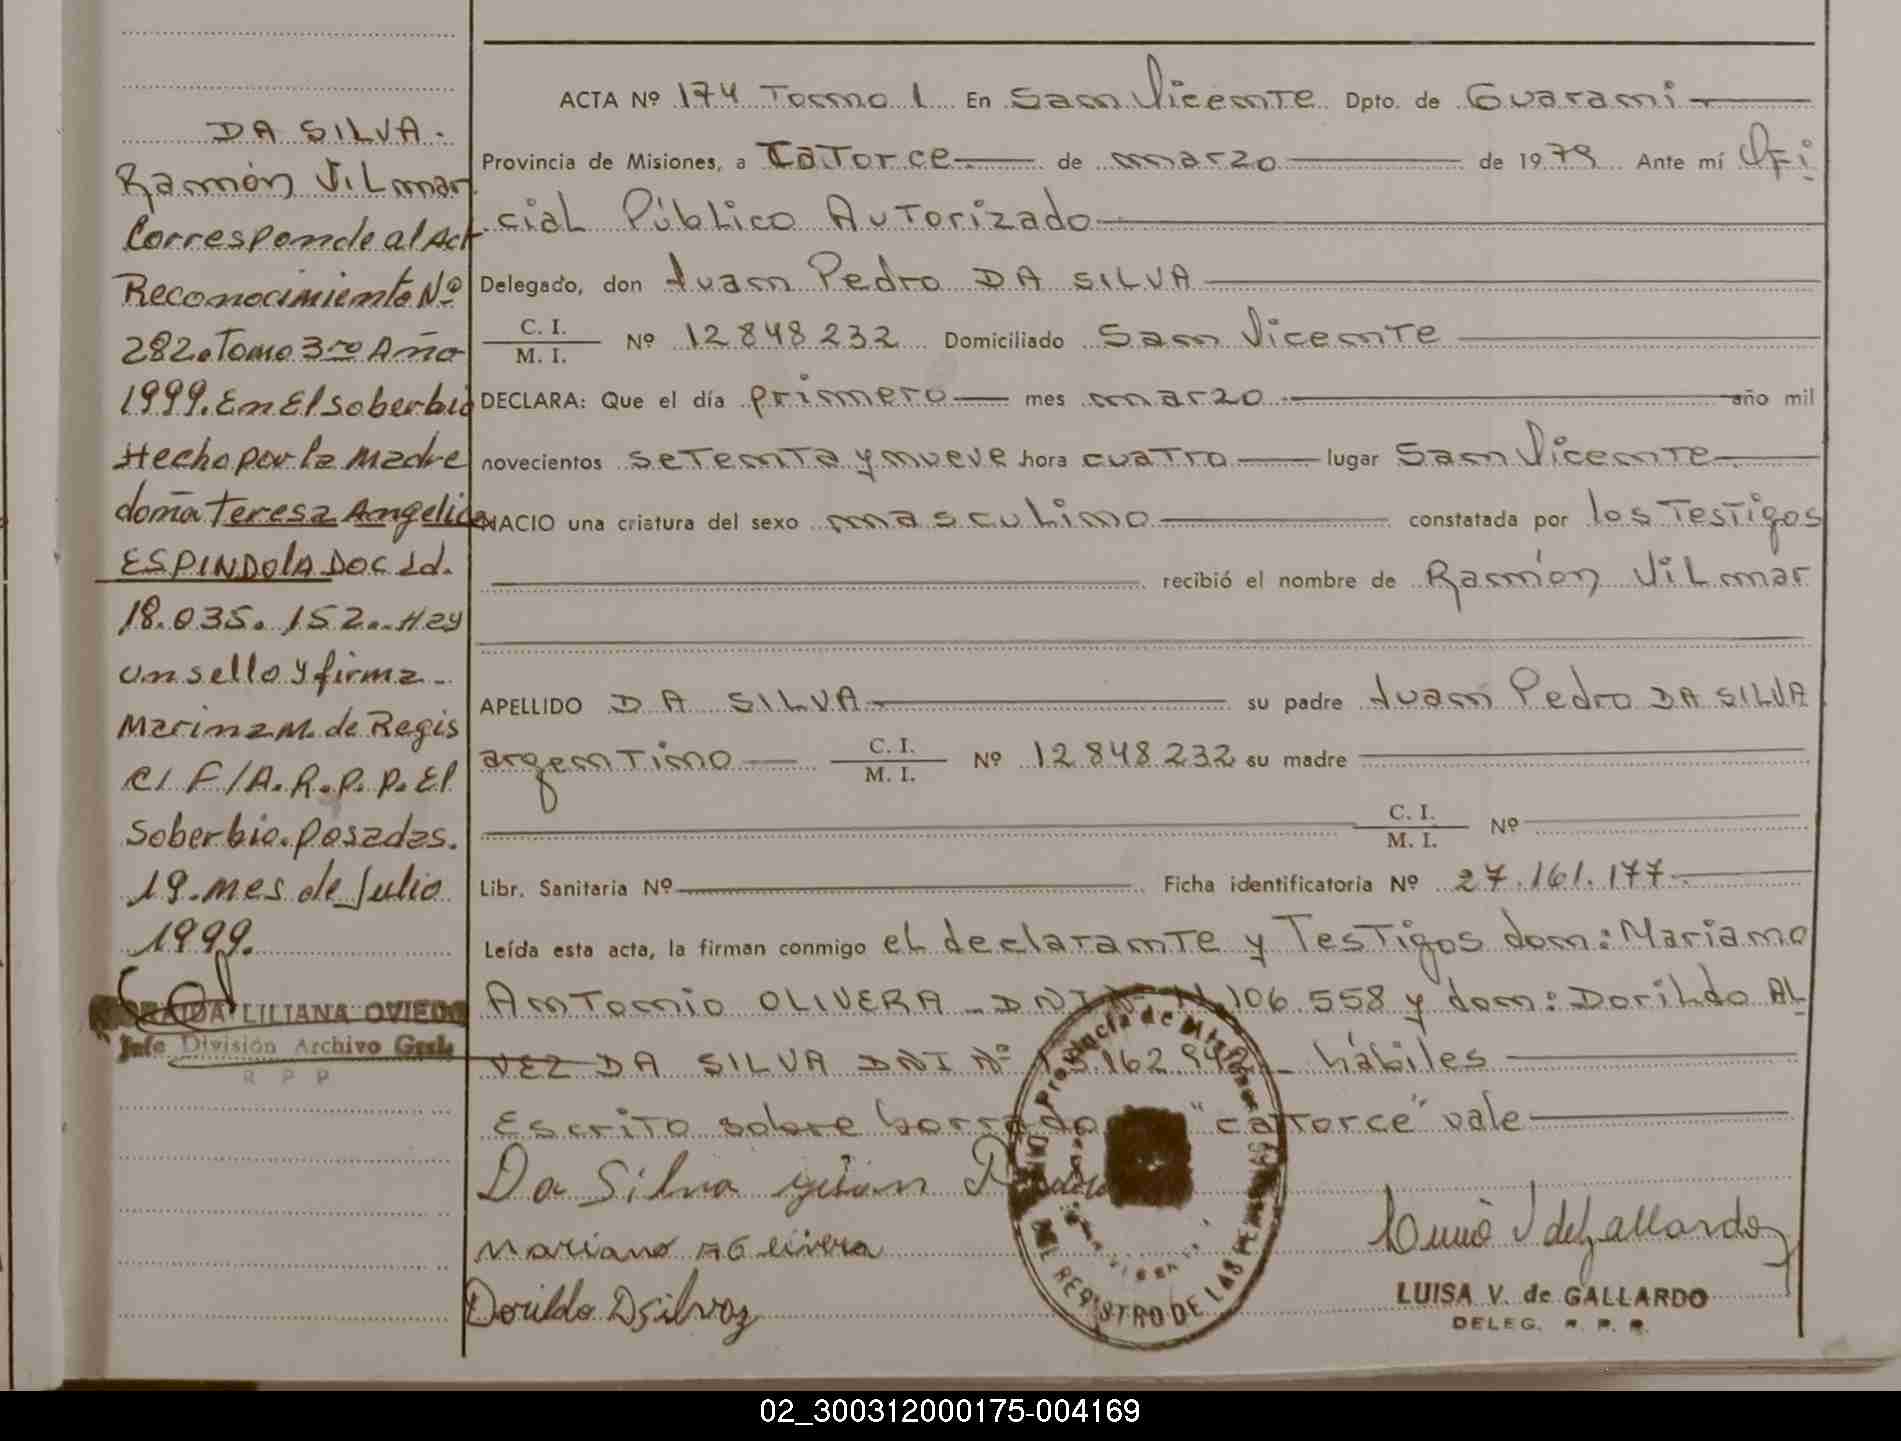 DA SILVA.
Ramón Vilmar
Corresponde al Act
Reconocimiento Nº
282. Tomo 3ro Año
1999. En El Soberbio
Hecho por la Madre
doña Teresa Angelica
ESPINDOLA DOC Id.
18.035.152.. Hay
un sello y firma.
Marina M. de Regis
C/ F/A.R.P.P. El
Soberbio. Posadas.
19. mes de Julio
1999.
LILIANA OVIEDO
Jefe División Archivo Gral.
R P P
ACTA Nº 174 Tomo 1 En San Vicente Dpto. de Guarani
Provincia de Misiones, a Catorce de marzo de 1979 Ante mí Ofi
cial Público Autorizado
Delegado, don Juan Pedro DA SILVA
C. I.
M. I. Nº 12848232 Domiciliado San Vicente
DECLARA: Que el día primero mes marzo año mil
novecientos setenta y nueve hora cuatro lugar San Vicente
NACIO una criatura del sexo masculino constatada por los Testigos
recibió el nombre de Ramón Vilmar
APELLIDO DA SILVA su padre Juan Pedro DA SILVA
argentino C. I.
M. I. Nº 12848232 su madre
C. I.
M. I. Nº
Libr. Sanitaria Nº Ficha identificatoria Nº 27.161.177
Leída esta acta, la firman conmigo el declarante y Testigos don: Mariano
Antonio OLIVERA - DNI Nº 11.106.558 y don: Dorildo AL
VEZ DA SILVA DNI Nº 162.942 - hábiles
Escrito sobre borrado "catorce" vale
Da Silva Juan Pedro
Mariano A Olivera
Dorildo Dsilvaz
Provincia de Misiones
REGISTRO DE LAS PERSONAS
LUISA V. de GALLARDO
DELEG. R. P. P.
02_300312000175-004169